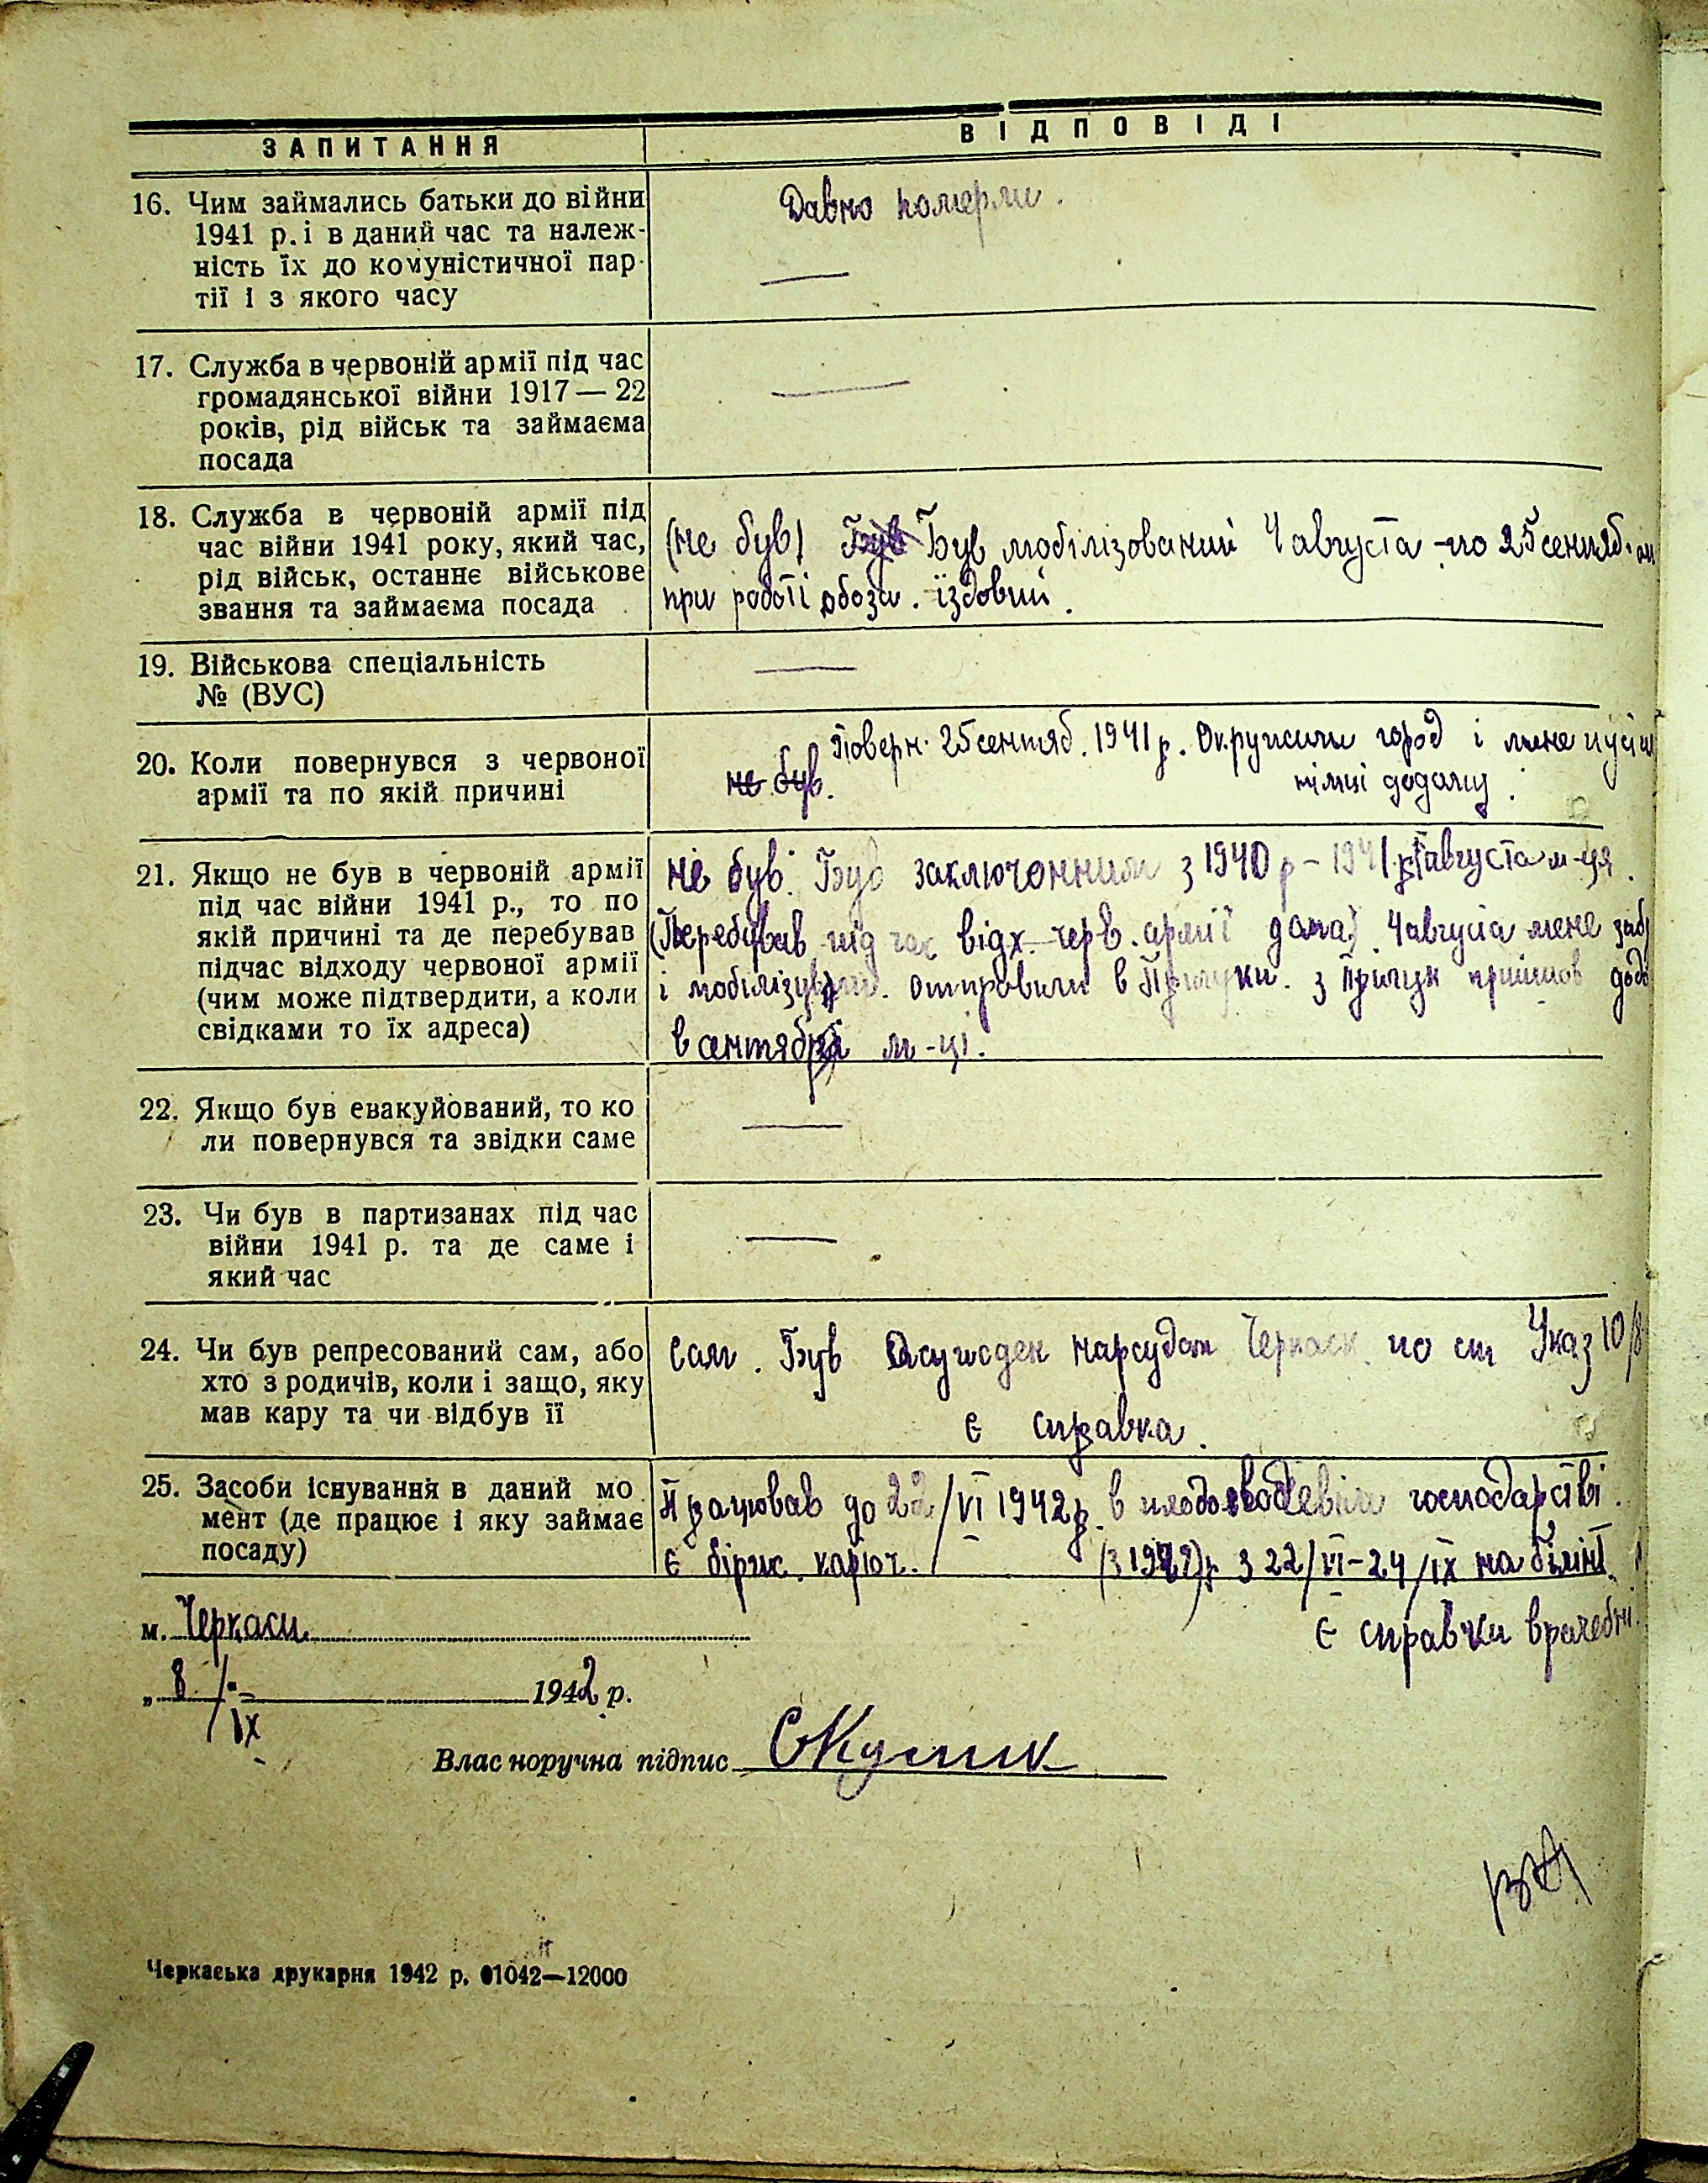 ЗАПИТАННЯ
ВІДПОВІДІ
16. Чим займались батьки до війни
1941 р. і в даний час та належ-
ність їх до комуністичної пар-
тії і з якого часу
Давно померли.
—
17. Служба в червоній армії під час
громадянської війни 1917 — 22
років, рід військ та займаєма
посада
—
18. Служба в червоній армії під
час війни 1941 року, який час,
рід військ, останнє військове
звання та займаєма посада
(не був) Був Був мобілізований 4 августа -по 25 сентяб.
при роботі обоза. їздовий.
19. Військова спеціальність
№ (ВУС)
—
20. Коли повернувся з червоної
армії та по якій причині
Поверн. 25 сентяб. 1941 р. Окружили город і мене
не був. німці додому.
21. Якщо не був в червоній армії
під час війни 1941 р., то по
якій причині та де перебував
підчас відходу червоної армії
(чим може підтвердити, а коли
свідками то їх адреса)
не був. Був заключонним з 1940 р – 1941 р августа м-ця.
(Перебував під час відх. черв. армії дома). 4 августа мене
і мобілізували. отправили в Прилуки. з Прилук прийшов
в сентябрі м-ці.
22. Якщо був евакуйований, то ко
ли повернувся та звідки саме
—
23. Чи був в партизанах під час
війни 1941 р. та де саме і
який час
—
24. Чи був репресований сам, або
хто з родичів, коли і защо, яку
мав кару та чи відбув її
Сам. Був Осужден нарсудом Черкаск. по ст Указ 10/8
є справка.
25. Засоби існування в даний мо
мент (де працює і яку займає
посаду)
Працював до 22/VI 1942 р. в господарстві.
є бірж. карточ. з 22/VI – 24/IX на
є справки врачебні.
м. Черкаси
„ 8 /IX 1942 р.
Власноручна підпис СКулик
Черкаська друкарня 1942 р. 01042—12000